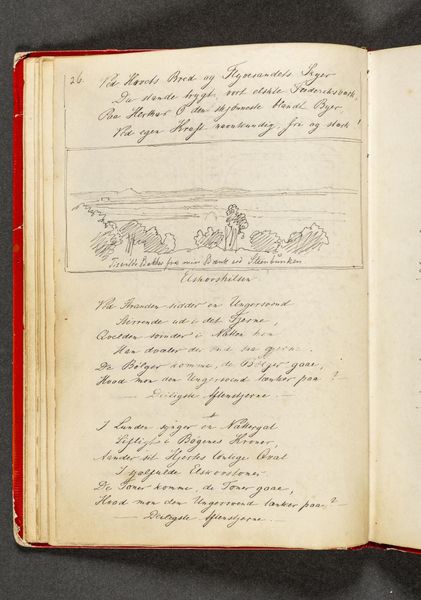 26.
Ved Havets Bred og Flyvesandets Skyer
Du stande trygt, vort elskte Frederiksværk,
Paa Herthas Ø den skjønneste blandt Byer
Ved egen Kraft navnkundig, fri og stærk!
Tisvilde Bakker fra min Bænk ved Steenbænken
Elskovshilsen
Ved Stranden sidder en Ungersvend
Stirrende ud i det Fjerne,
Qvelden svinder i Natten hen
Han dvæler der end saa gjerne.
De Bølger komme, de Bølger gaae,
Hvad mon den Ungersvend tænker paa?
Deiligste Aftenstjerne.
I Lunden synger en Nattergal
Lifligt i Bøgenes Kroner,
Aander sit Hjertes Qval
I Elskovstoner
De Toner komme de Toner gaae,
Hvad mon den Ungersvend tænker paa?
Deiligste Aftenstjerne.